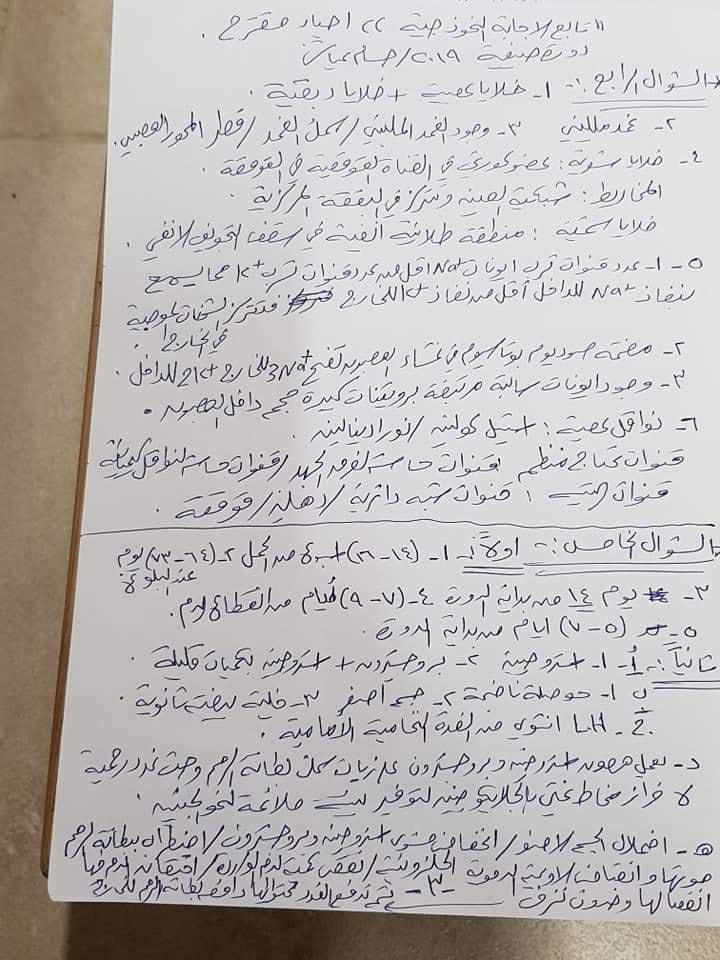 " تابع الاجابة النموذجية ٢٢ اختبار مقترح .
دورة صيفية ٢٠١٩/حسام عياش
* السؤال الرابع :- ١- خلايا عصبية + خلايا دبقية .
٢- غمد مليني ٣- وجود الغمد المليني / سمك الغمد / قطر المحور العصبي .
٤- خلايا شعرية : عضو كورتي في القناة القوقعية في القوقعة
المخاريط : شبكية العين وتتركز في البقعة المركزية
خلايا شمية : منطقة طلائية أنفية في سقف التجويف الانفي .
٥- ١- عدد قنوات تسرب ايونات Na+ اقل من عدد قنوات تسرب K+ مما يسمح
بنفاذ Na+ للداخل أقل من نفاذ K+ للخارج فتتركز الشحنات الموجبة
في الخارج .
٢- مضخة صوديوم بوتاسيوم في غشاء العصبون تضخ 3Na+ للخارج 2K+ للداخل .
٣- وجود ايونات سالبة مرتبطة بروتينات كبيرة حجم داخل العصبون .
٦- نواقل عصبية : استيل كولين / نورادرينالين
قنوات تحتاج منظم قنوات حساسة لفرق الجهد / قنوات حساسة لنواقل كيميائية
قنوات : قنوات شبه دائرية / دهليز / قوقعة .
* السؤال الخامس :- اولاً :- ١- (١٤-٢٦) اسبوع من الحمل ٢- (٦٤-٧٣) يوم
عند البلوغ
٣- يوم ١٤ من بداية الدورة ٤- (٧-٩) أيام من انقطاع الدم .
٥- (٥-٧) ايام من بداية الدورة .
ثانياً :- أ- ١- استروجين ٢- بروجسترون + استروجين بكميات قليلة .
ب ١- حوصلة ناضجة ٢- جسم اصفر ٣- خلية بيضية ثانوية .
ج- LH انثوي من الغدة النخامية الامامية .
د- يعمل هرمون استروجين وبروجسترون على زيادة سمك بطانة الرحم وحث غدد رحمية
لافراز مخاط غني بالجلايكوجين لتوفير بيئة ملائمة لنمو الجنين .
هـ- اضمحلال الجسم الاصفر / انخفاض مستوى استروجين وبروجسترون / اضطراب بطانة الرحم
موتها وانقباض الاوعية الدموية الحلزونية / نقص كمية الدم الواردة /
انفصالها وحدوث نزف -٣- ثم تدفع الغدد محتوياتها دافعة بطانة الرحم للخارج